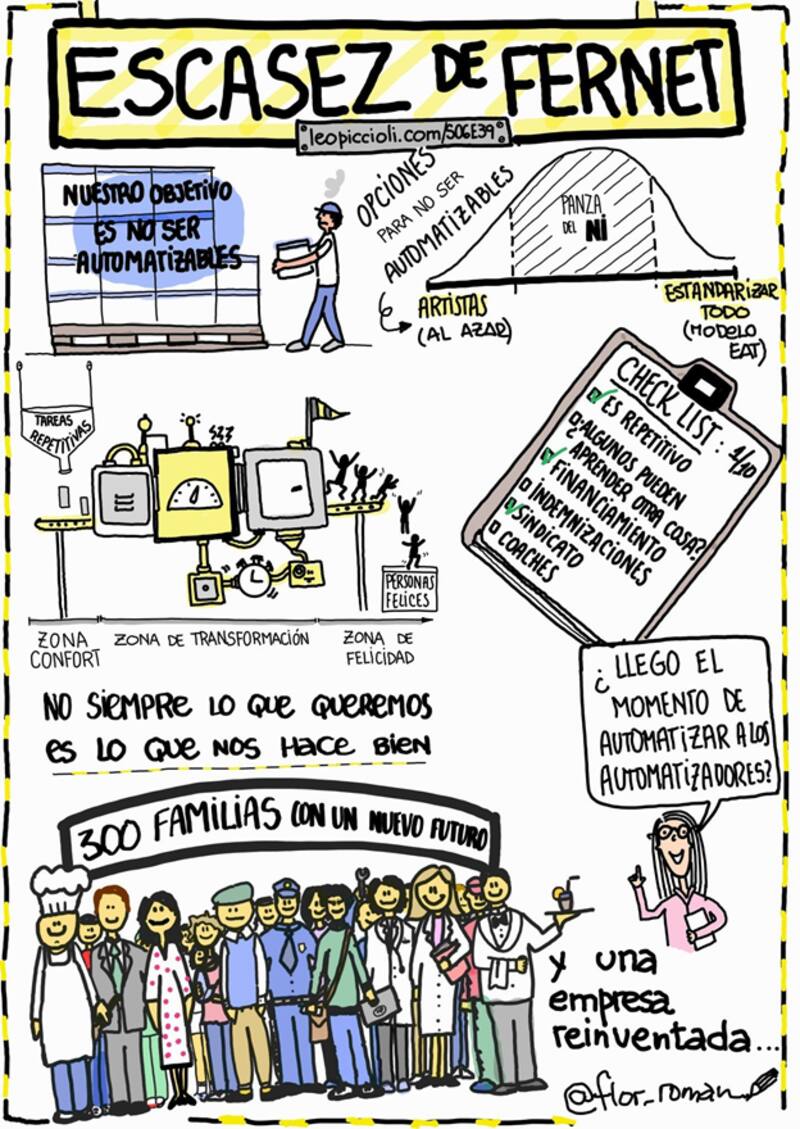 ESCASEZ DE FERNET
leopiccioli.com/S06E39
NUESTRO OBJETIVO
ES NO SER
AUTOMATIZABLES
OPCIONES
PARA NO SER
AUTOMATIZABLES
PANZA
DEL NI
ARTISTAS
(AL AZAR)
ESTANDARIZAR
TODO
(MODELO
EAT)
TAREAS
REPETITIVAS
PERSONAS
FELICES
ZONA
CONFORT
ZONA DE TRANSFORMACIÓN
ZONA DE
FELICIDAD
CHECK LIST: 1/10
ES REPETITIVO
¿ALGUNOS PUEDEN
APRENDER OTRA COSA?
FINANCIAMIENTO
INDEMNIZACIONES
SINDICATO
COACHES
NO SIEMPRE LO QUE QUEREMOS
ES LO QUE NOS HACE BIEN
¿LLEGO EL
MOMENTO DE
AUTOMATIZAR A LOS
AUTOMATIZADORES?
300 FAMILIAS CON UN NUEVO FUTURO
y una
empresa
reinventada...
@flor_roman